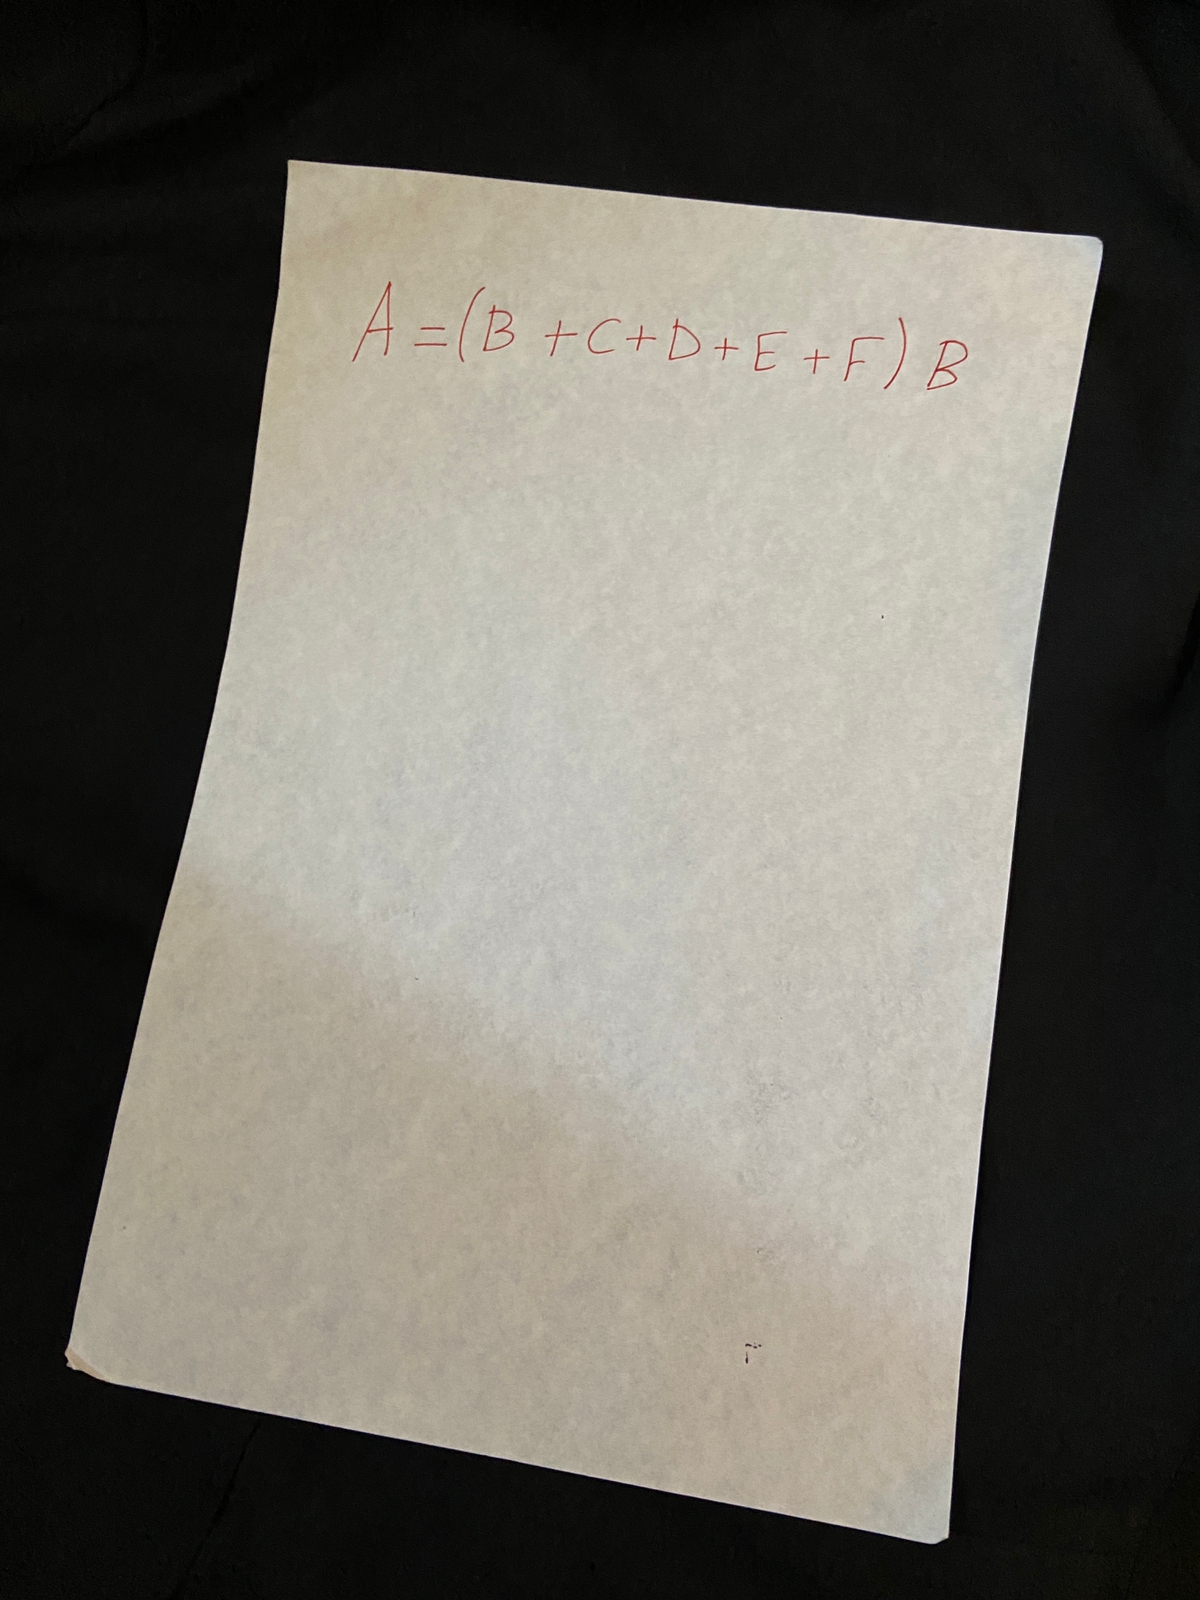 A = (B + C + D + E + F) B